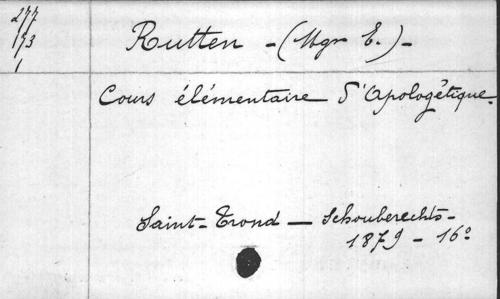 277
173
1
Rutten - (Mgr E.) -
Cours élémentaire d'Apologétique.
Saint-Trond — Schouberechts -
1879 - 16°